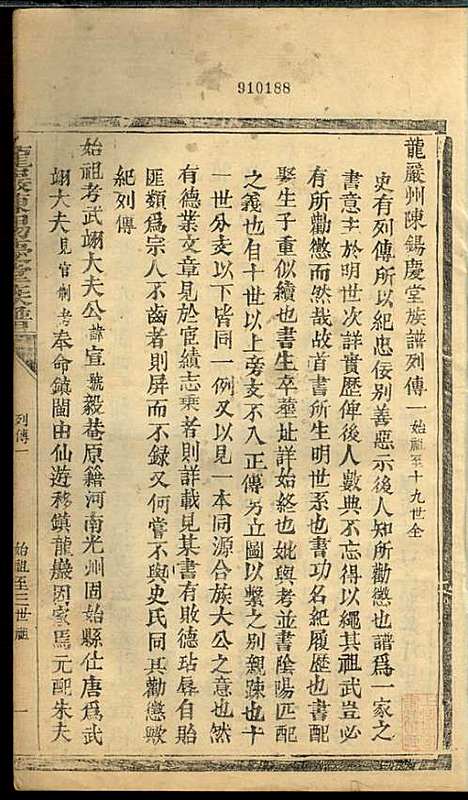 910188
龍巖州陳錫慶堂族譜列傳一 始祖至十九世全
史有列傳所以紀忠佞别善惡示後人知所勸懲也譜爲一家之
書意主於明世次詳實歷俾後人數典不忘得以繩其祖武豈必
有所勸懲而然哉故首書所生明世系也書功名紀履歷也書配
娶生子重似續也書生卒葬址詳始終也妣與考並書陰陽匹配
之義也自十世以上旁支不入正傳另立圖以繫之别親踈也十
一世分支以下皆同一例又以見一本同源合族大公之意也然
有德業文章見於宦績志乘者則詳載見某書有敗德玷辱自貽
匪類爲宗人不齒者則屏而不録又何嘗不與史氏同其勸懲歟
紀列傳
始祖考武翊大夫公諱宣號毅菴原籍河南光州固始縣仕唐爲武
翊大夫見官制考奉命鎮閩由仙遊移鎮龍巖因家焉元配朱夫
龍巖陳錫慶堂族譜
列傳一
始祖至三世祖
一